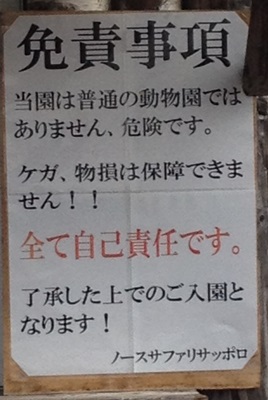 免責事項
当園は普通の動物園では
ありません、危険です。
ケガ、物損は保障できま
せん！！
全て自己責任です。
了承した上でのご入園と
なります！
ノースサファリサッポロ